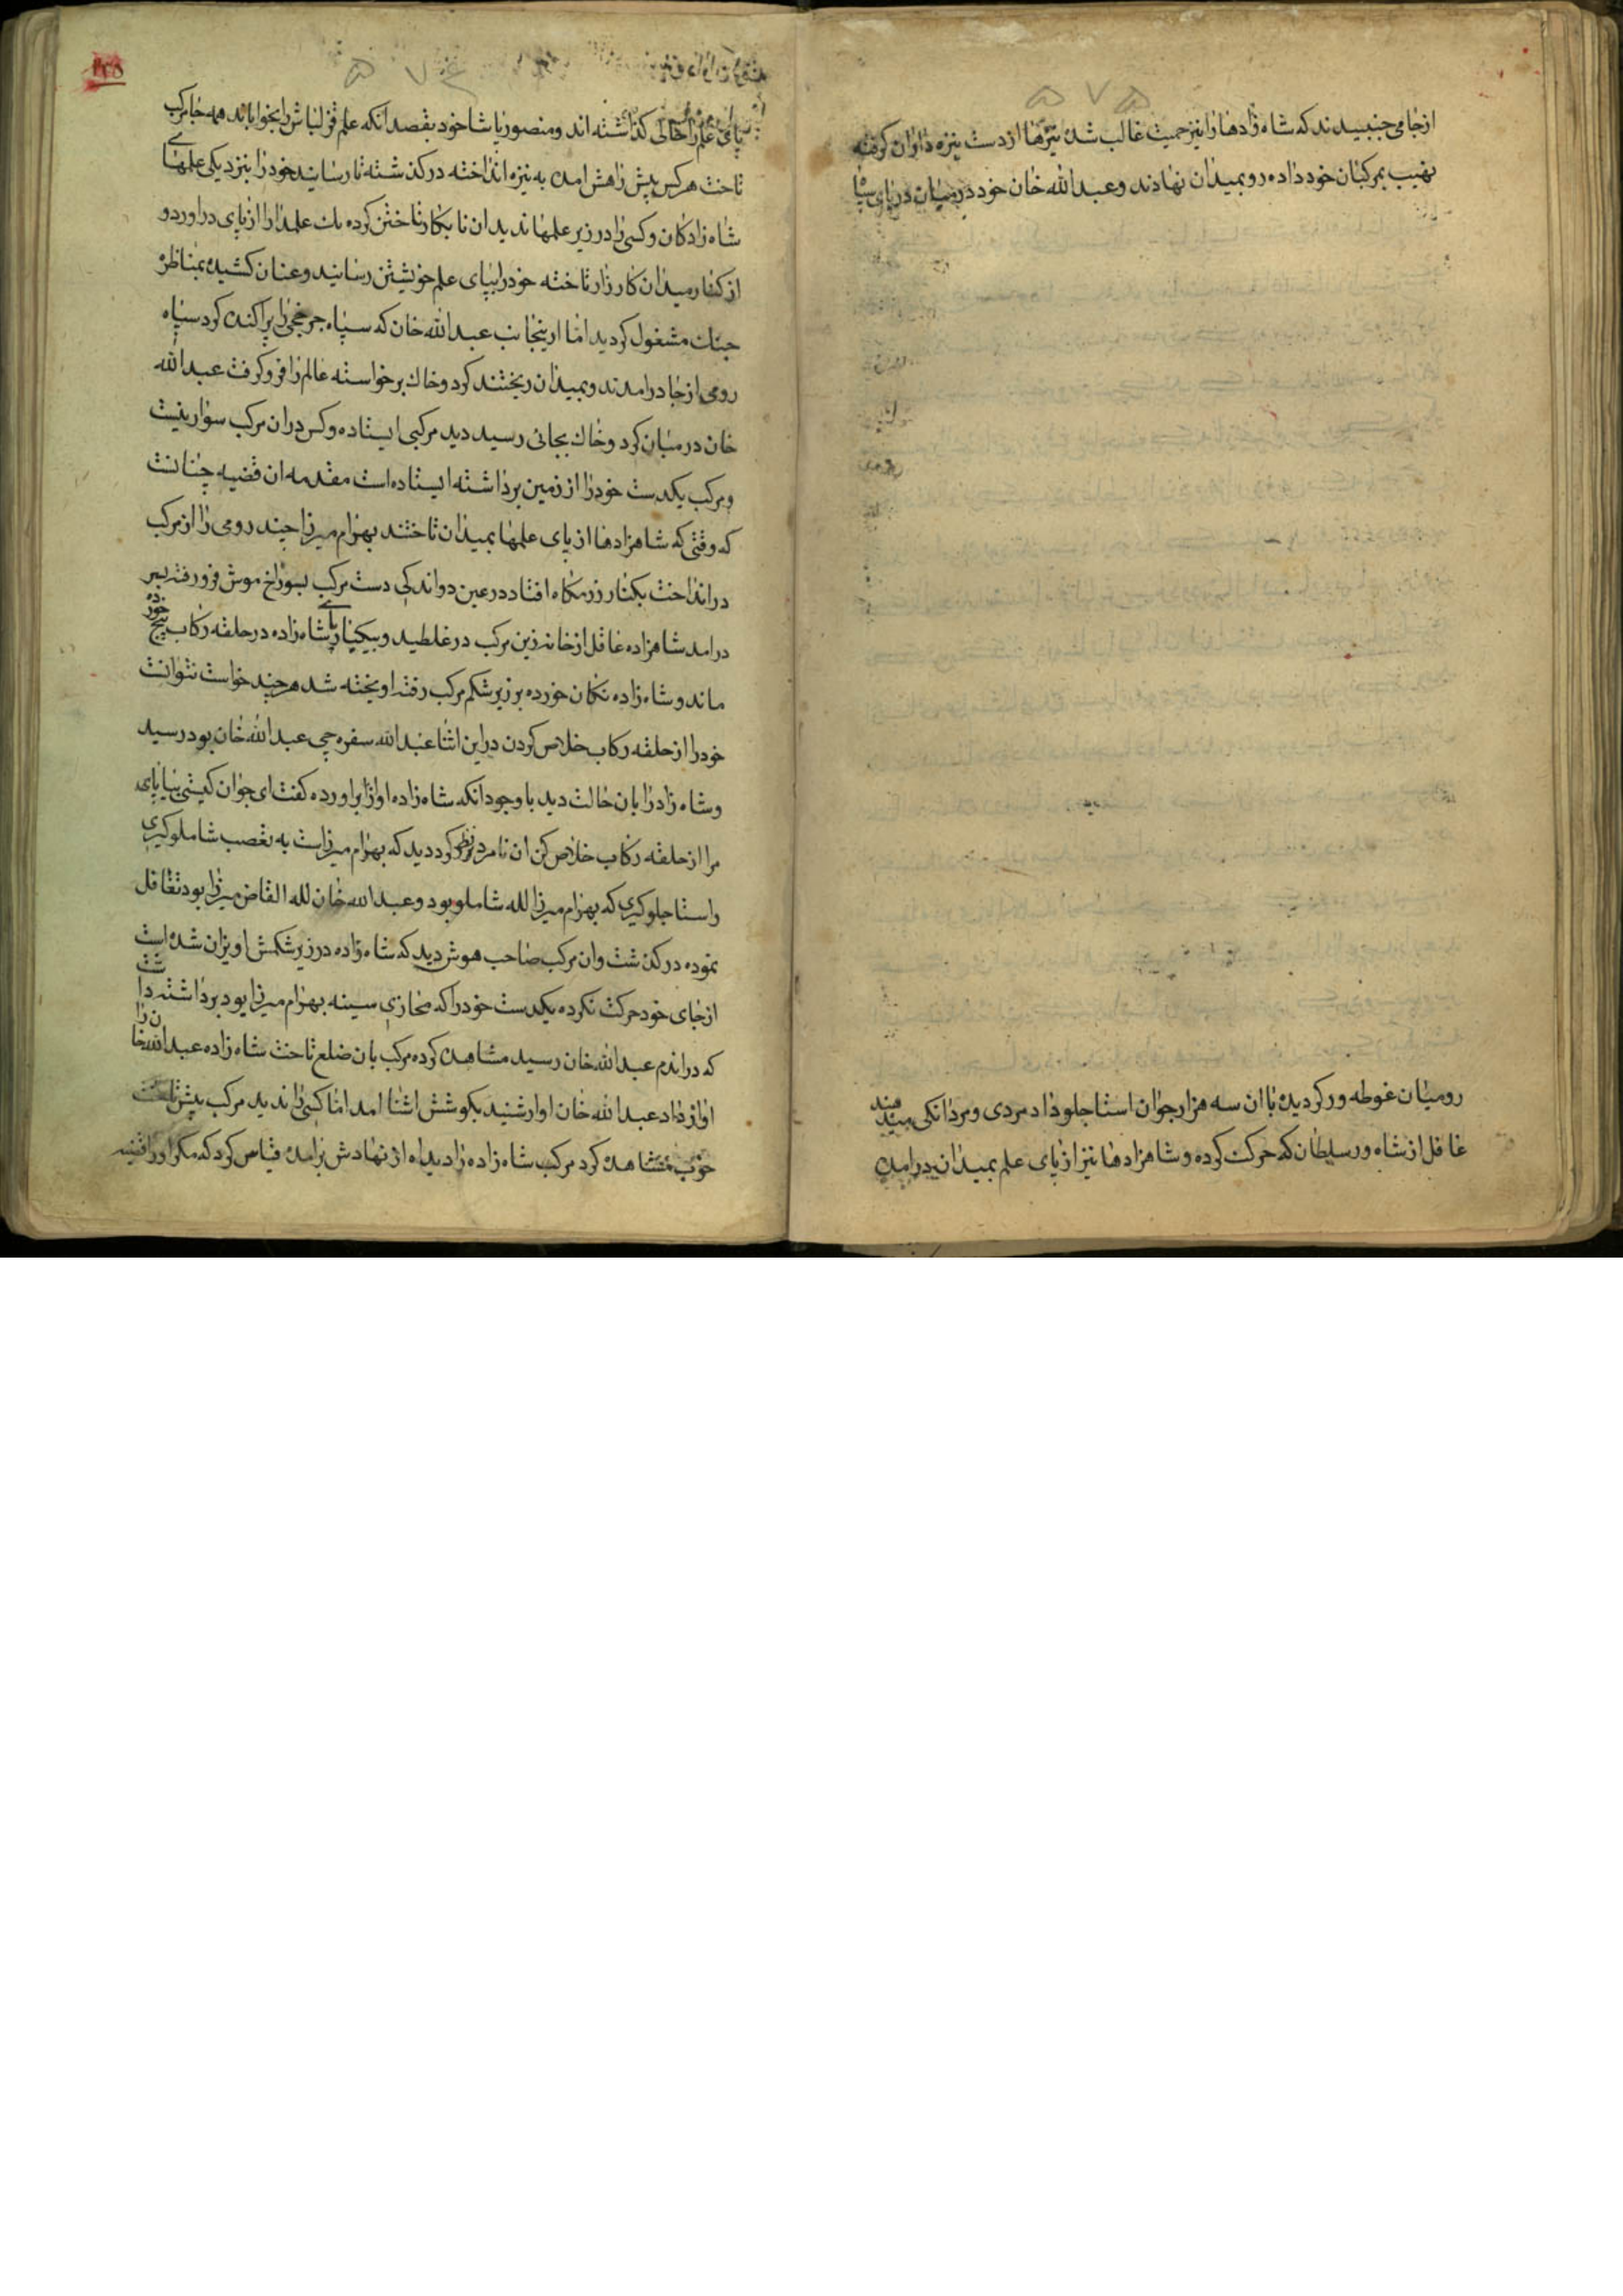 ۵۷۵
ازجای جنبیدند که شاه زادها را نیز حمیت غالب شده نیزها از دست نیزه داران کرفته
نهیب بمرکبان خود داده رو بمیدان نهادند و عبدالله خان خود در میان دریای سپاه
رومیان غوطه ور کردیده با ان سه هزار جوان استاجلو داد مردی و مردانکی میدند
غافل از شاه ورسلطان که حرکت کرده و شاهزادها نیز از پای علم بمیدان درامده
۵۷۴
پای علم را خالی کذاشته اند و منصور پاشا خود بقصد انکه علم قزلباش را بخواباند همه جا مرکب
تاخت هرکس پیش راهش امده به نیزه انداخته درکذشته تا رسانید خود را بنزدیکی علمهای
شاه زادکان و کسی را در زیر علمها ندید ان نابکار تاختن کرده یک علمدار را از پای دراورد و
از کنار میدان کارزار تاخته خود را بپای علم خویشتن رسانید و عنان کشیده بمناظره
جنک مشغول کردید اما ازینجانب عبدالله خان که سپاه جرخجی را پراکنده کرد سپاه
رومی از جا درامدند و بمیدان ریختند کرد و خاک برخواسته عالم را فرو کرفت عبدالله
خان در میان کرد و خاک بجائی رسید دید مرکبی ایستاده و کس در ان مرکب سوار نیست
و مرکب یکدست خود را از زمین برداشته ایستاده است مقدمه ان قضیه چنانست
که وقتی که شاهزادها از پای علمها بمیدان تاختند بهرام میرزا چند رومی را از مرکب
درانداخت بکنار رزمکاه افتاد در عین دواندکی دست مرکب بسوراخ موش فرو رفته بسر
درامد شاهزاده غافل از خانه زین مرکب در غلطید و بیکبار پای شاه زاده در حلقه رکاب پیچ خورده
ماند و شاه زاده تکان خورده بر زیر شکم مرکب رفته اویخته شد هرچند خواست نتوانست
خود را از حلقه رکاب خلاص کردن دراین اثنا عبدالله سفره چی عبدالله خان بود رسید
و شاه زاد را بان حالت دید با وجود انکه شاه زاده اواز براورده کفت ای جوان کیستی بیا پای
مرا از حلقه رکاب خلاص کن ان نامرد نظر کرد دید که بهرام میرزاست به تعصب شاملوکیری
و استاجلوکیری که بهرام میرزا لله شاملو بود و عبدالله خان لله القاض میرزا بود تغافل
نموده درکذشت و ان مرکب صاحب هوش دید که شاه زاده در زیر شکمش اویزان شده است
از جای خود حرکت نکرده یکدست خود را که محازی سینه بهرام میرزا بود برداشته داشت
که دراندم عبدالله خان رسید مشاهده کرده مرکب بان ضلع تاخت شاه زاده عبدالله خان را
اواز داد عبدالله خان اواز شنید بکوشش اشنا امد اما کسی را ندید مرکب پیش تاخت
خوب مشاهده کرد مرکب شاه زاده را دید اه از نهادش برامده قیاس کرد که مکر او را قضیه